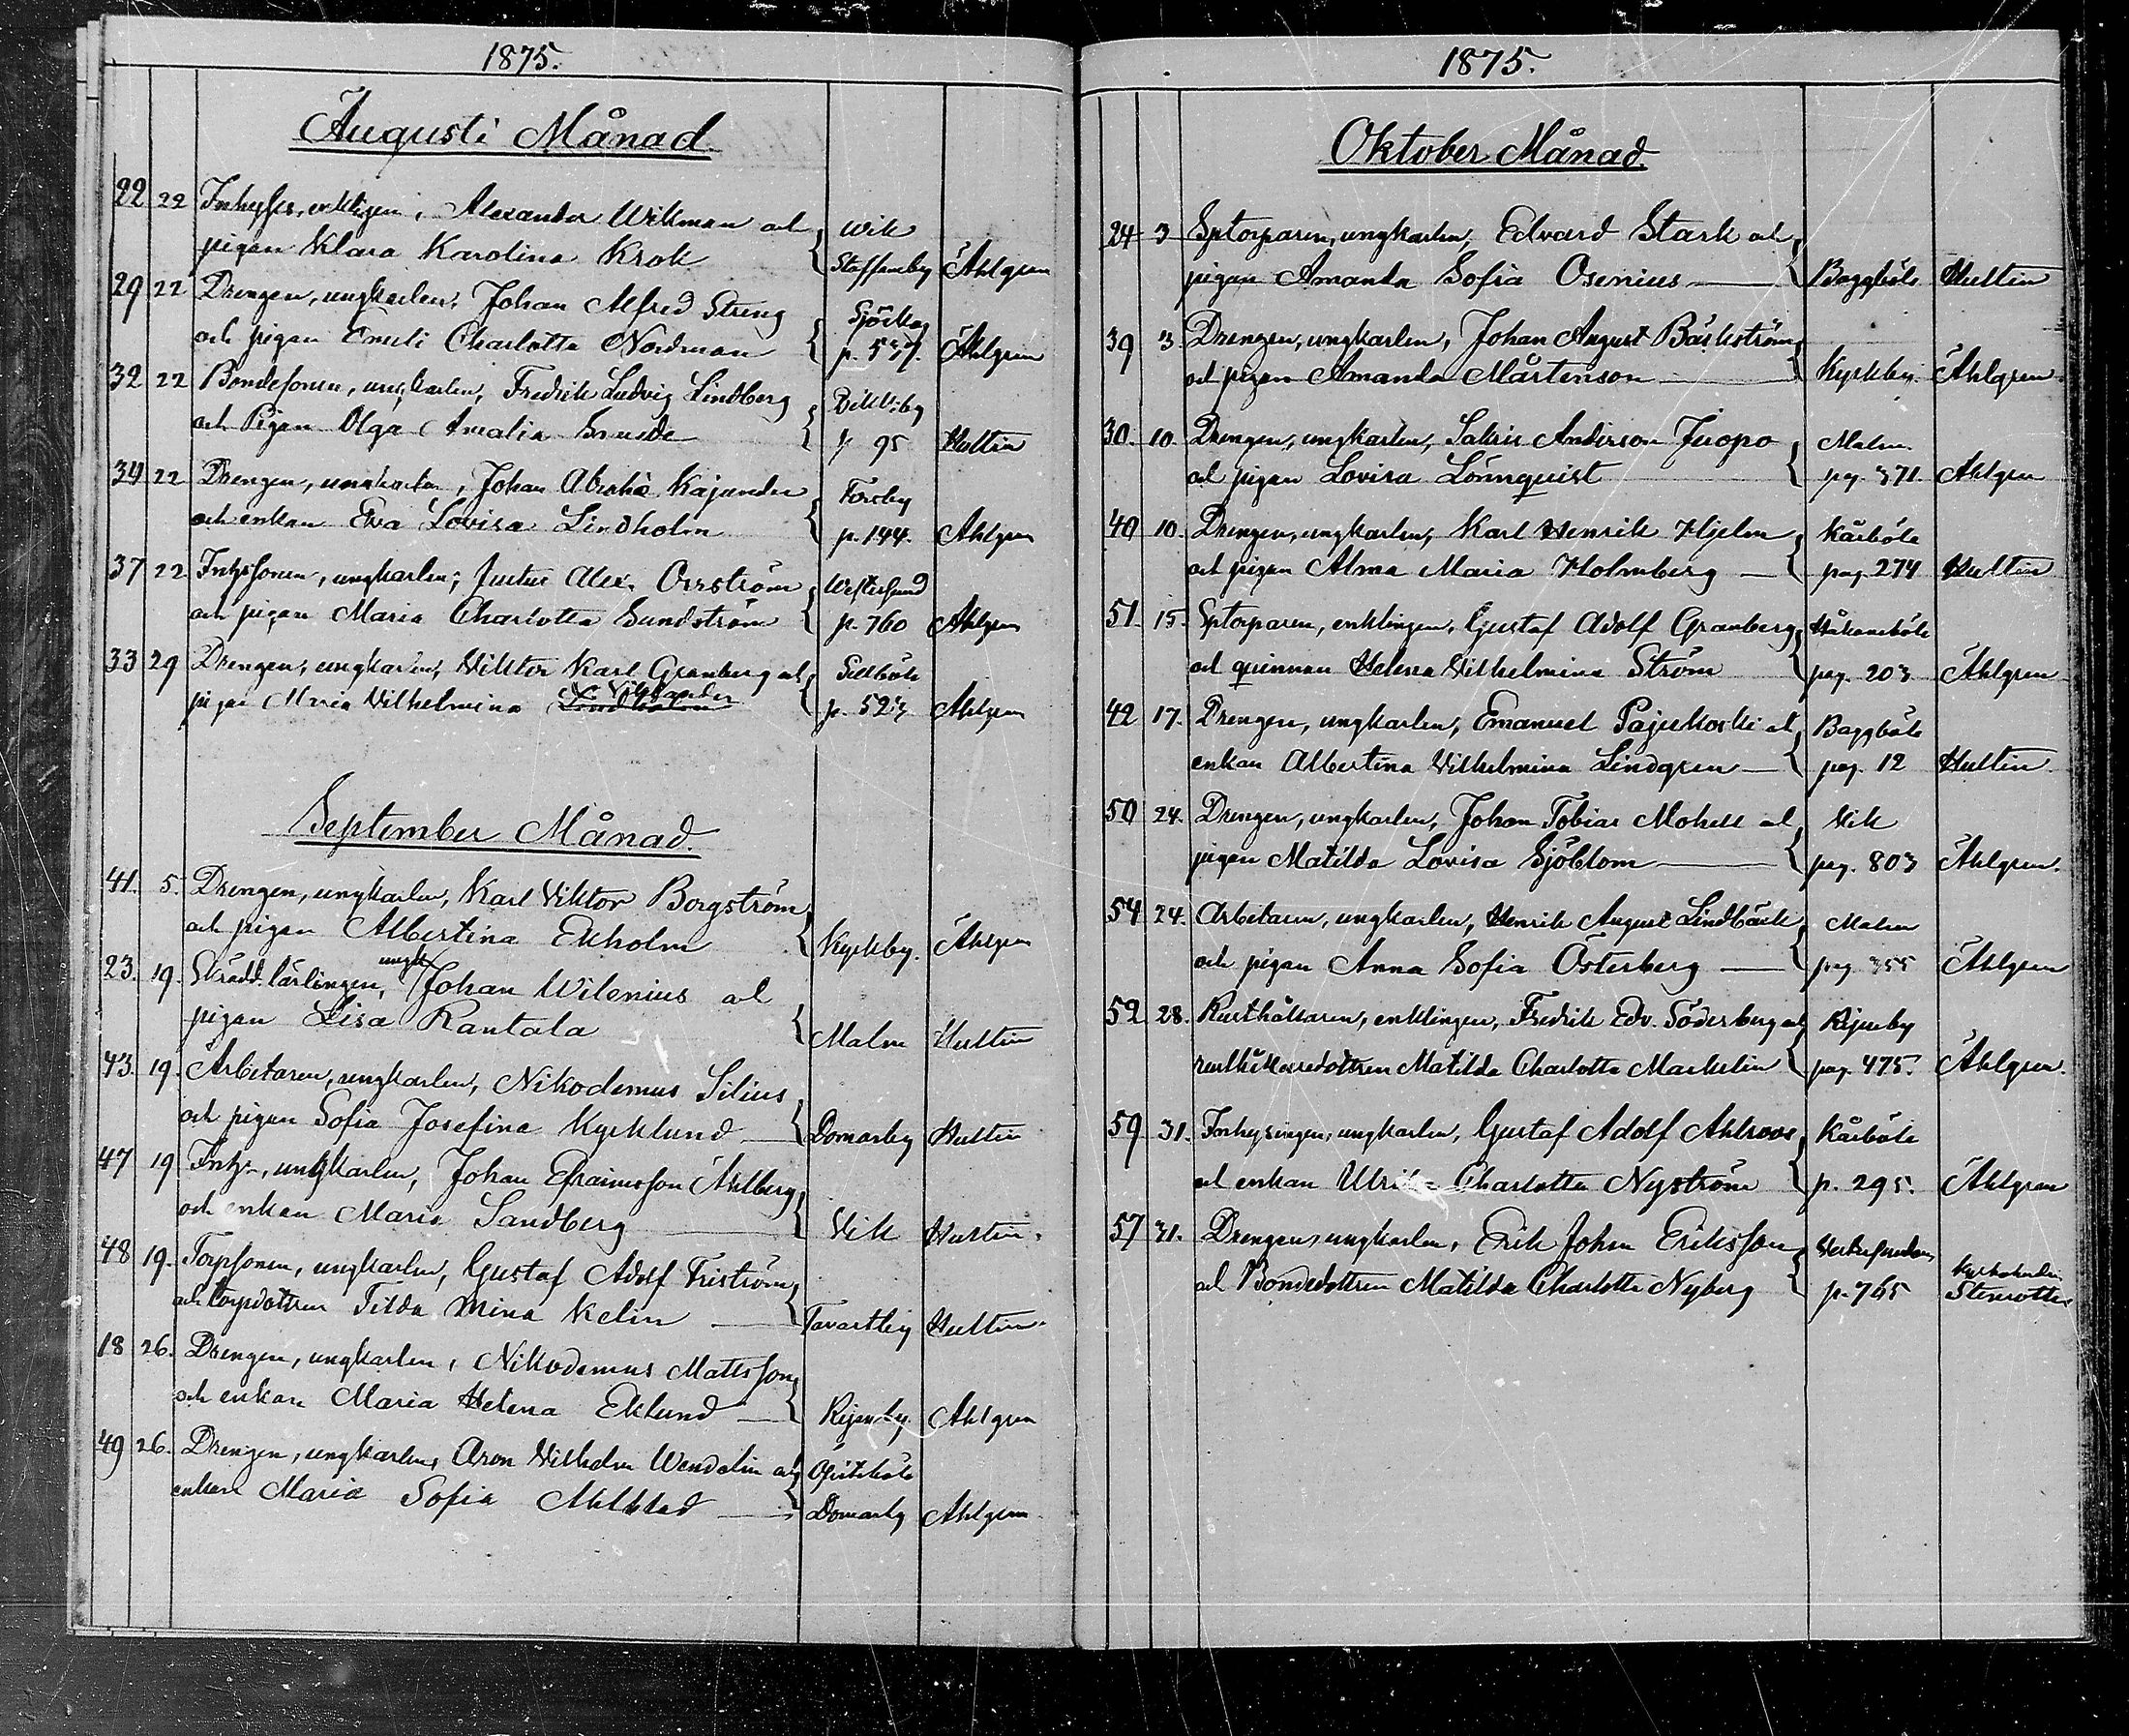 1875.
Augusti Månad
22 22 Inhyses, enklingen, Alexander Wikman och Wik
pigan Klara Karolina Krok Staffansby Ahlgren
29 22 Drengen, ungkarlen, Johan Alfred Streng Sjöskog
och pigan Emeli Charlotta Nordman p. 537. Ahlgren
32 22 Bondesonen, ungkarlen, Fredrik Ludvig Lindberg
och Pigan Olga Amalia p 95 Hultin
34 22 Drengen, ungkarlen, Johan Kajander Forsby
och enkan Eva Lovisa Lindholm p. 144. Ahlgren
37 22 ungkarlen, Justus Alex. Orrström Westersund
och pigan Maria Charlotta Sundström p. 760 Ahlgren
33 29 Drengen, ungkarlen, Viktor Karl Granberg och
pigan Maria Vilhelmina Lindholm p. 523 Ahlgren
September Månad.
41. 5. Drengen, ungkarlen, Karl Viktor Borgström
och pigan Albertina Ekholm Kyrkby. Ahlgren
23. 19. Skrädd.lärlingen, ungk Johan Wilenius och
pigan Lisa Rantala Malm Hultin
43. 19. Arbetaren, ungkarlen, Nikodemus Silius
och pigan Sofia Josefina Kyrklund Domarby Hultin
47 19 ungkarlen, Johan Efraimsson Ahlberg
och enkan Maria Sandberg Vik Hultin.
48 19. Torpsonen, ungkarlen, Gustaf Adolf Friström
och torpdottren Tilda Mina Kelin Tavastby Hultin.
18 26. Drengen, ungkarlen, Nikodemus Mattsson
och enkan Maria Helena Eklund Ahlgren
49 26. Drengen, ungkarlen, Aron Vilhelm Wendelin och
enkan Maria Sofia Domarby Ahlgren
1875.
Oktober Månad
24 3 Sptorparen, ungkarlen, Edvard Stark och
pigan Amanda Sofia Osenius Baggböle Hultin
39 3. Drengen, ungkarlen, Johan August Bäckström
och pigan Amanda Mårtenson Kyrkby. Ahlgren
30. 10. Drengen, ungkarlen, Anderson Juopo Malm
och pigan Lovisa Lönnquist pag. 371. Ahlgren
40 10. Drengen, ungkarlen, Karl Henrik Hjelm Kårböle
och pigan Alma Maria Holmberg pag. 274 Hultin
51. 15. Sptorparen, enklingen, Gustaf Adolf Granberg Håkansböle
och quinnan Helena Vilhelmina Ström pag. 203 Ahlgren
42 17. Drengen, ungkarlen, Emanuel Pajukoski och Baggböle
enkan Albertina Vilhelmina Lindgren pag. 12 Hultin
50 24. Drengen, ungkarlen, Johan Tobias Mohell och Vik
pigan Matilda Lovisa Sjöblom pag. 803 Ahlgren.
54 24. Arbetaren, ungkarlen, Henrik August Lindbäck Malm
och pigan Anna Sofia Österberg pag 355 Ahlgren
52 28. Rusthållaren, enklingen, Fredrik Edv. Söderberg och
rusthållaredottren Matilda Charlotta Markelin pag. 475. Ahlgren.
59 31. Inhysingen, ungkarlen, Gustaf Adolf Ahlroos Kårböle
och enkan Ulrika Charlotta Nyström p. 295. Ahlgren
57 31. Drengen, ungkarlen, Erik Johan Eriksson
och Bondedottren Matilda Charlotta Nyberg p. 765